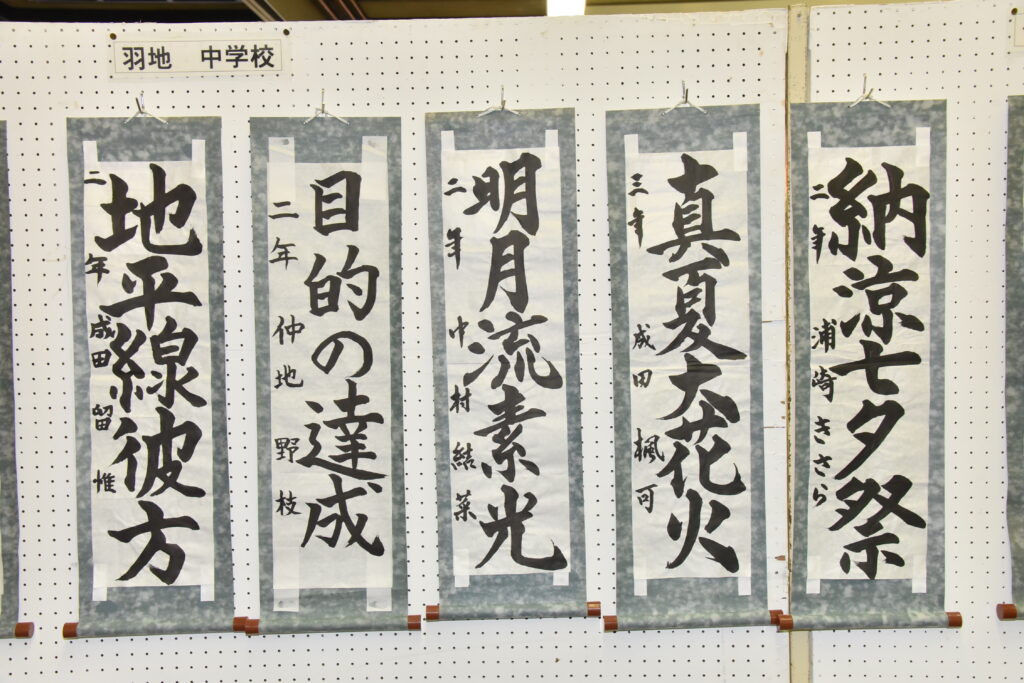 羽地 中学校
納涼七夕祭
二年 浦崎きさら
真夏大花火
三年 成田楓可
明月流素光
二年 中村結菜
目的の達成
二年 仲地野枝
地平線彼方
二年 成田留惟